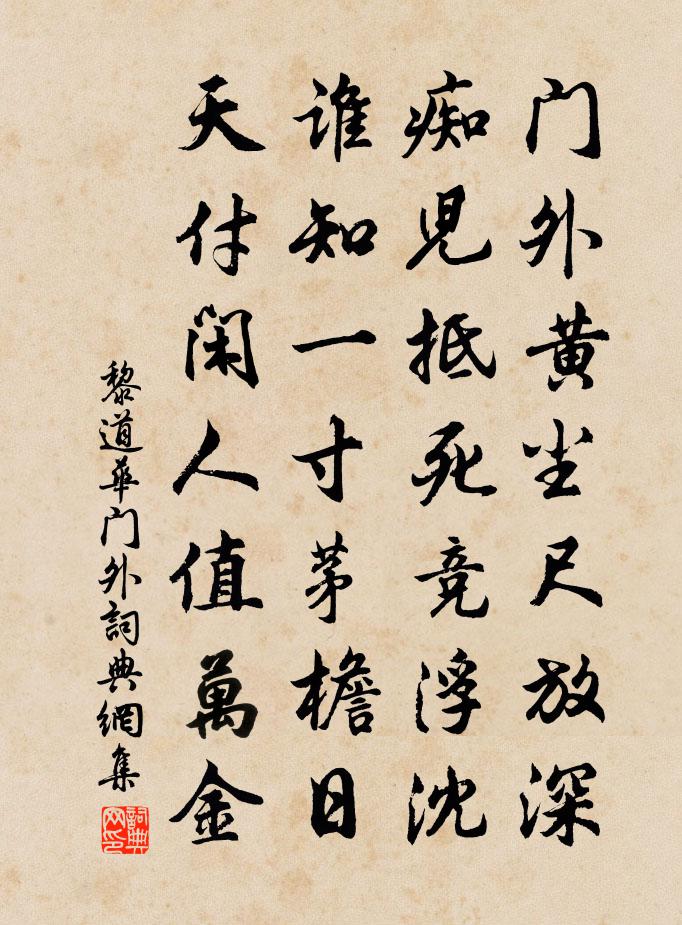 门外黄尘尺放深
痴児抵死竞浮沈
谁知一寸茅檐日
天付闲人值萬金
黎道華门外詞典網集
詞典网印